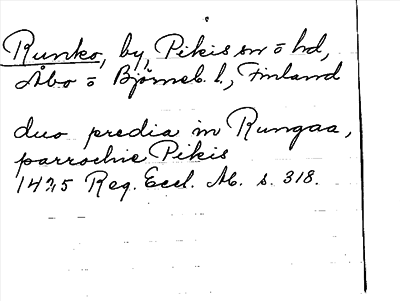 Runko, by, Pikis sn o hd,
Åbo o Björneb. l., Finland
duo predia in Rungaa,
parrochie Pikis
1425 Reg. Eccl. Ab. s. 318.